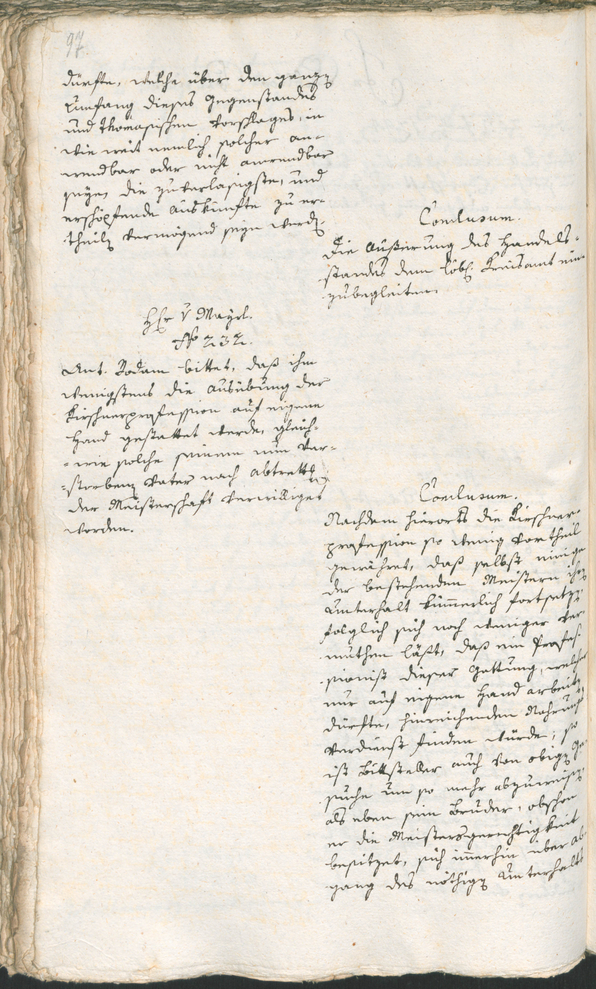 97.
dürfte, welche über den ganzen
Umfang dieses Gegenstandes
und Thomasischen Vorschlages, in
wie weit nemlich solcher an-
wendbar oder nicht anwendbar
seyn, die zuverlasigste, und
erschöpfende Auskünfte zu er-
theilen vermögend seyn werden.
Conclusum.
Die Äußerung des Handels-
standes dem Löbl. Kreisamt ein-
zubegleiten.
H. v Mayrl.
No 232.
Ant. Rodam bittet, daß ihm
wenigstens die Ausübung der
Kirschnerprofession auf eigene
Hand gestattet werde, gleich-
wie solche seinem nun ver-
storbenen Vater nach Abtrettung
der Meisterschaft verwilliget
worden.
Conclusum.
Nachdem hierorts die Kirschner-
profession so wenig Vortheil
gewähret, daß selbst einige
der bestehenden Meistern ihren
Unterhalt kümmerlich fortsetzen
folglich sich noch weniger ver-
muthen läßt, daß ein Profes-
sionist dieser Gattung, welcher
nur auf eigene Hand arbeiten
dürfte, hinreichenden Nahrungs
Verdienst finden würde; so
ist Bittsteller auch von obigen Ge-
suche um so mehr abzuweisen,
als eben sein Bruder, obschon
er die Meistersgerechtigkeit
besitzet, sich immerhin über Ab-
gang des nöthigen Unterhalts